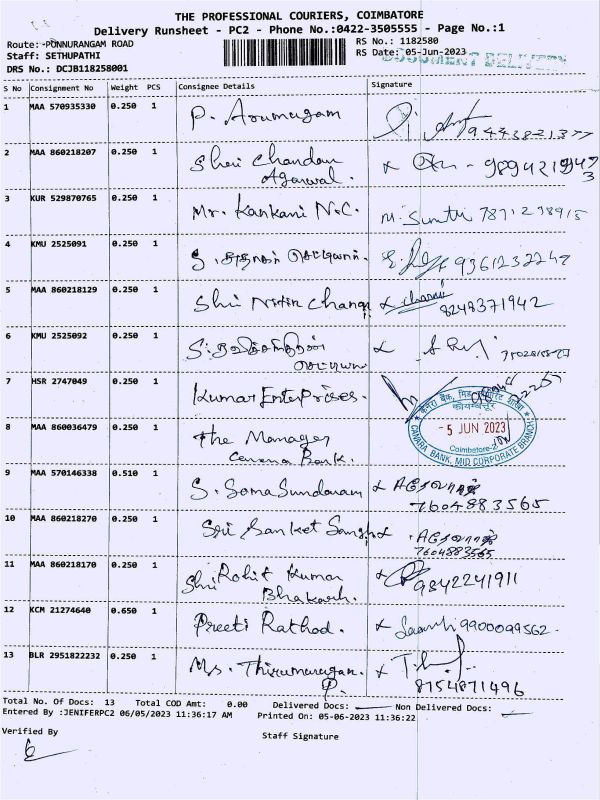 THE PROFESSIONAL COURIERS, COIMBATORE
Delivery Runsheet - PC2 - Phone No.:0422-3505555 - Page No.:1
Route:-PONNURANGAM ROAD RS No.: 1182580
Staff: SETHUPATHI RS Date: 05-Jun-2023
DOCUMENT DELIVERY
DRS No.: DCJB118258001
S No Consignment No Weight PCS Consignee Details Signature
1 MAA 570935330 0.250 1 P. Arumugam
2 MAA 860218207 0.250 1 Shri Chandan
Agarwal.
3 KUR 529870765 0.250 1 Mr. Kankani N.C.
4 KMU 2525091 0.250 1 S.
5 MAA 860218129 0.250 1 Shri Nitin Chang 8248371942
6 KMU 2525092 0.250 1 S.
7 HSR 2747049 0.250 1 Kumar Enterprises.
8 MAA 860036479 0.250 1 The Manager
Canara Bank.
केनरा बैंक
कोयम्बत्तूर
- 5 JUN 2023
Coimbatore-2
CANARA BANK, MID CORPORATE BRANCH
9 MAA 570146338 0.510 1 S. Soma Sundaram 7604883565
10 MAA 860218270 0.250 1 Sri Sanket 7604883565
11 MAA 860218170 0.250 1 Shri Rohit Kumar 9842241911
Bhakash.
12 KCM 21274640 0.650 1 Preeti Rathod. 9900099562.
13 BLR 2951822232 0.250 1 Ms. Thirumurugan. P. 8754871496
Total No. Of Docs: 13 Total COD Amt: 0.00 Delivered Docs: Non Delivered Docs:
Entered By :JENIFERPC2 06/05/2023 11:36:17 AM Printed On: 05-06-2023 11:36:22
Verified By Staff Signature